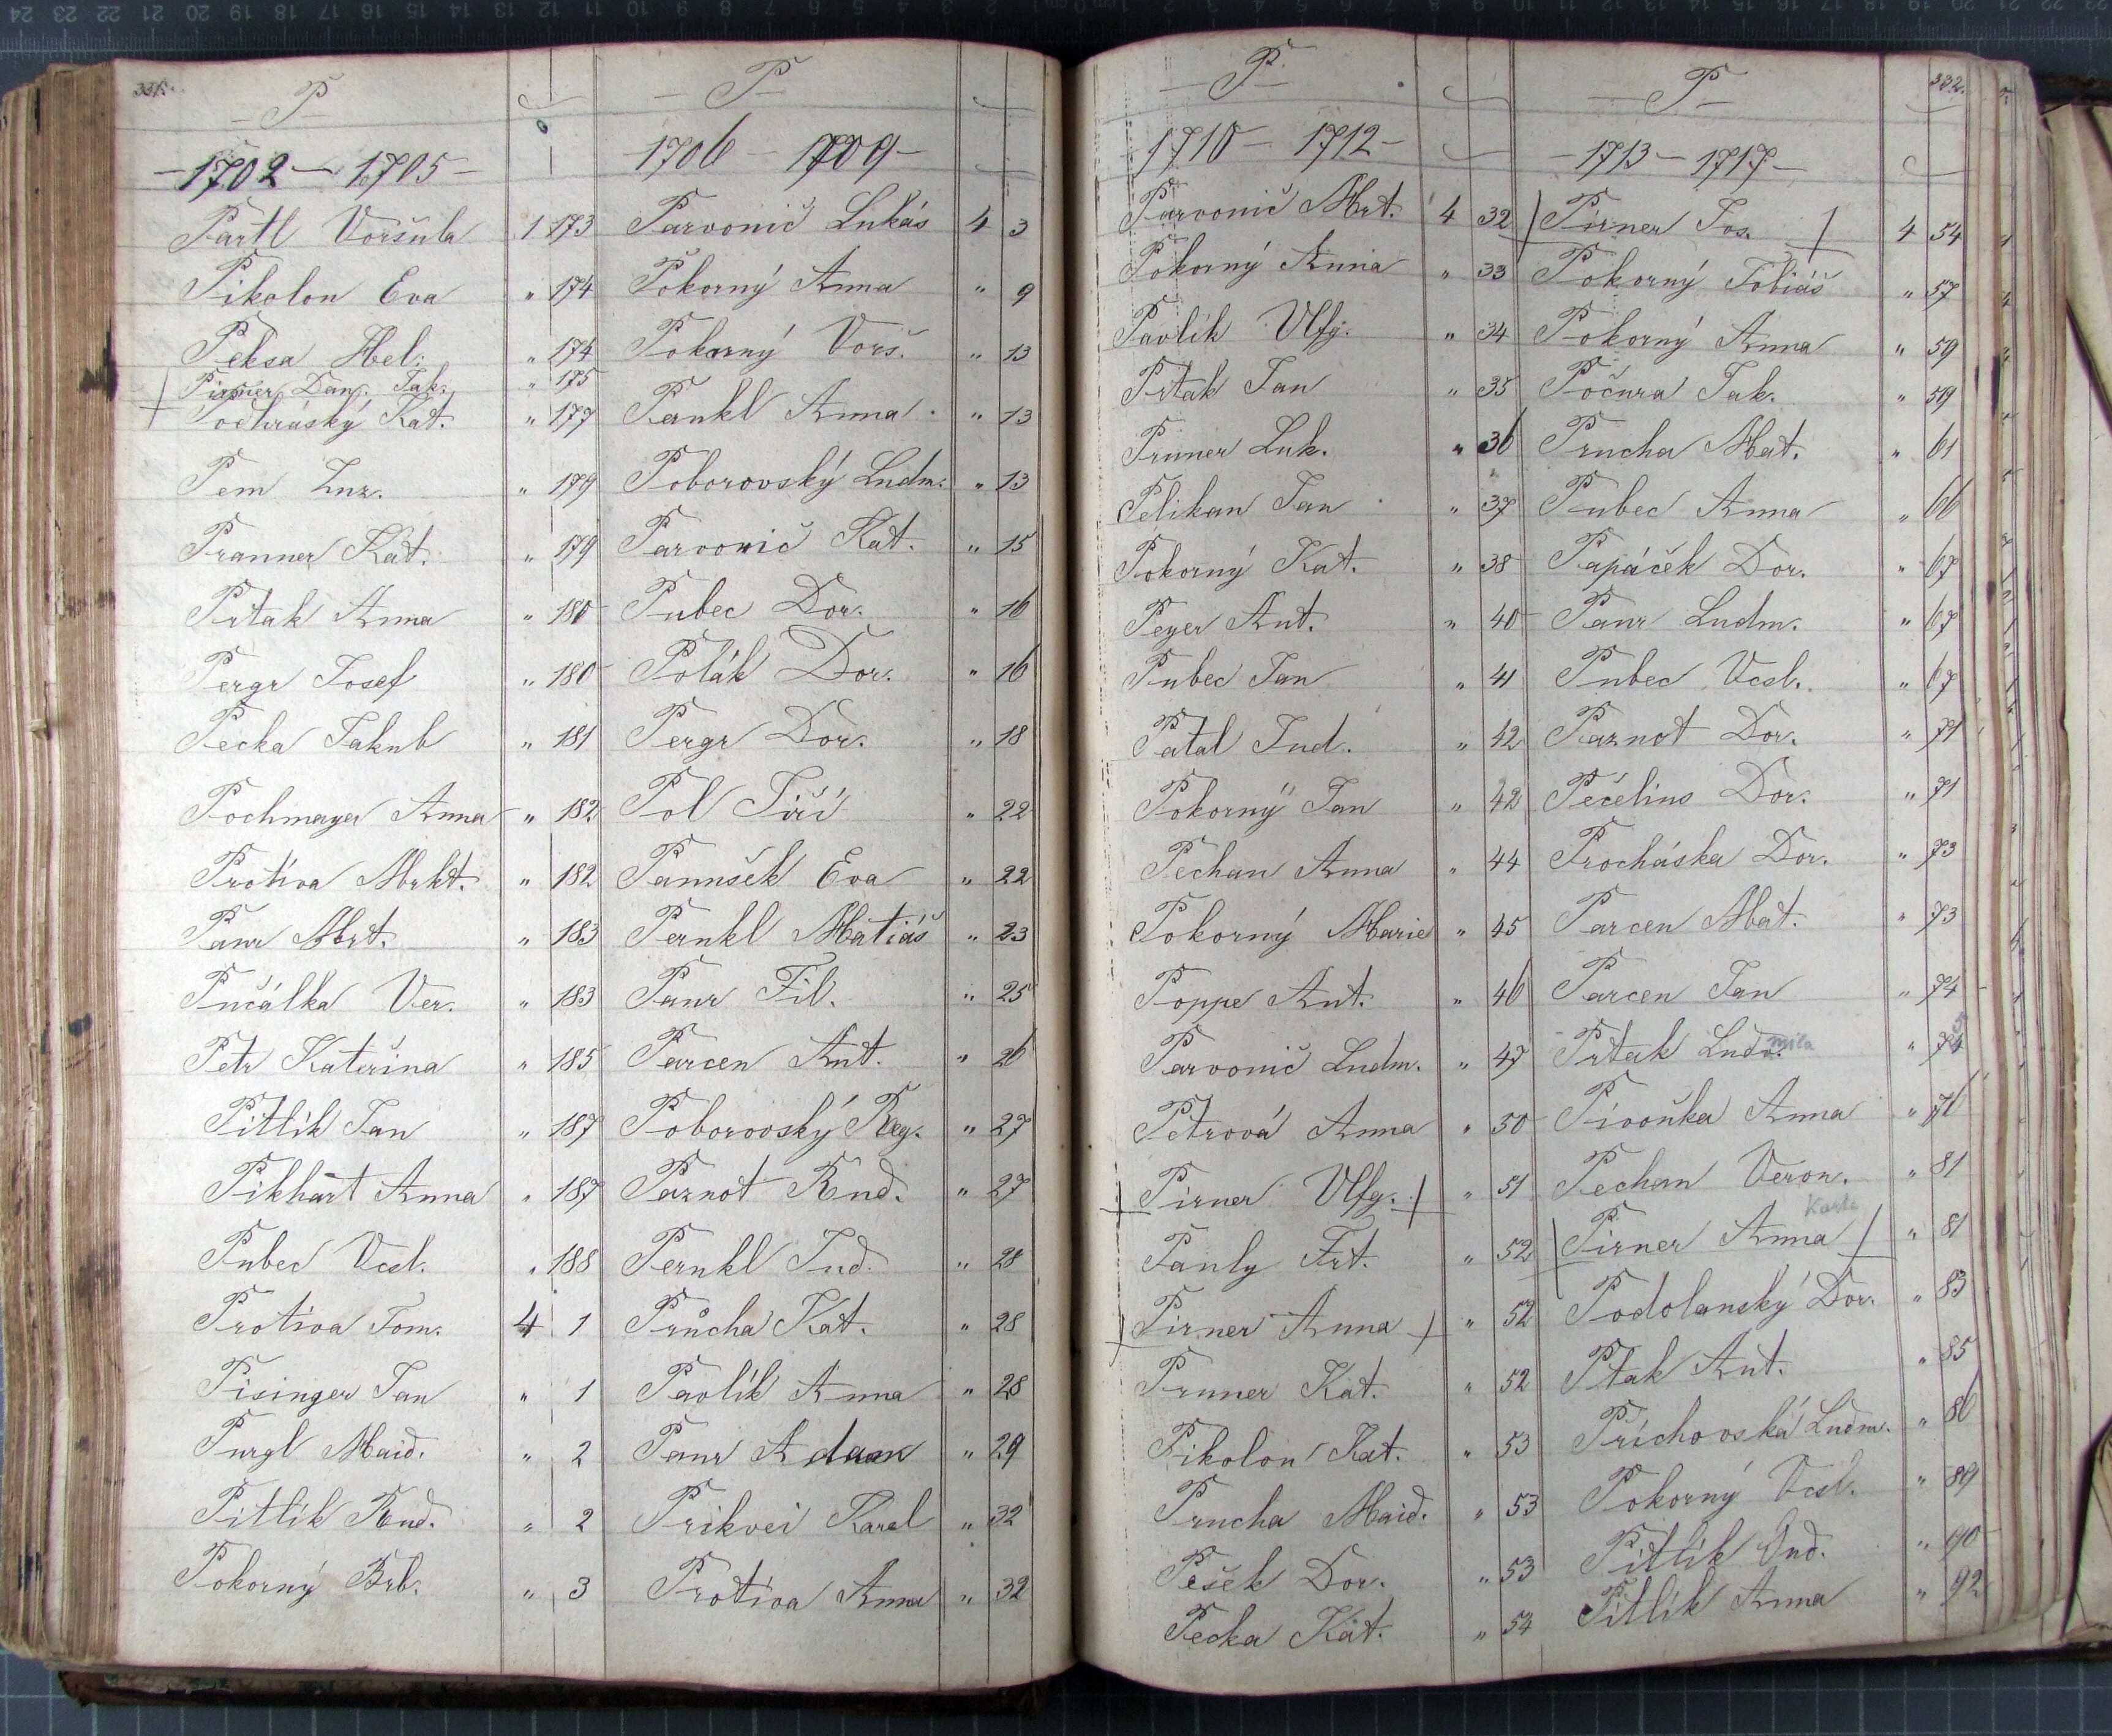 331.
P
1702 - 1705
Partl Voršula 1 173
Pikolon Eva " 174
Peksa Abel. " 174
Pirner Dan. Jak. " 175
Kat. " 177
Pem Zuz. " 179
Pranner Kat. " 179
Prtak Anna " 180
Pergr Josef " 180
Pecka Jakub " 181
Pochmayer Anna " 182
Protiva Mrkt. " 182
Paur Mrt. " 183
Pučálka Ver. " 183
Petr Kateřina " 185
Pitlík Jan " 187
Pikhart Anna " 187
Pubec Vcsl. " 188
Protiva Tom. 4 1
Pisinger Jan " 1
Purgl Maid. " 2
Pitlík Rud. " 2
Pokorný Brb. " 3
P
1706 - 1709
Parvonič Lukás 4 3
Pokorný Anna " 9
Pokorný Vorš. " 13
Pernkl Anna " 13
Poborovský Ludm. " 13
Parvonič Kat. " 15
Pubec Dor. " 16
Polák Dor. " 16
Pergr Dor. " 18
Pol Jiří " 22
Panušek Eva " 22
Pernkl Matiáš " 23
Paur Fil. " 25
Parcen Ant. " 26
Poborovský Reg. " 27
Paznot Rud. " 27
Pernkl Jud. " 28
Průcha Kat. " 28
Pavlík Anna " 28
Paur Adam " 29
Prikvei Karel " 32
Protiva Anna " 32
P
1710 - 1712
Parvonič Mrt. 4 32
Pokorný Anna " 33
Pavlík Vlfg. " 34
Prtak Jan " 35
Prunner Luk. " 36
Pelikan Jan " 37
Pokorný Kat. " 38
Peyer Ant. " 40
Pubec Jan " 41
Patal Jud. " 42
Pokorný Jan " 42
Pechan Anna " 44
Pokorný Marie " 45
Poppe Ant. " 46
Parvonič Ludm. " 47
Petrová Anna " 50
Pirner Vlfg. " 51
Pauly Frt. " 52
Pirner Anna " 52
Prunner Kat. " 52
Pikolon Kat. " 53
Prucha Maid. " 53
Pešek Dor. " 53
Pecka Kat. " 54
332.
P
1713 - 1717
Pirner Jos. 4 54
Pokorný Tobiáš " 57
Pokorný Anna " 59
Počura Jak. " 59
Prucha Mat. " 61
Pubec Anna " 66
Papáček Dor. " 67
Paur Ludm. " 67
Pubec Vcsl. " 67
Paznot Dor. " 71
Pečelius Dor. " 71
Procháska Dor. " 73
Parcen Mat. " 73
Parcen Jan " 74
Prtak Ludmila "
Pivoňka Anna " 76
Pechan Veron. " 81
Karla
Pirner Anna " 81
Podolanský Dor. " 83
Ptak Ant. " 85
Přichovská Ludm. " 86
Pokorný Vcsl. " 89
Pitlík Ond. " 90
Pitlík Anna " 92